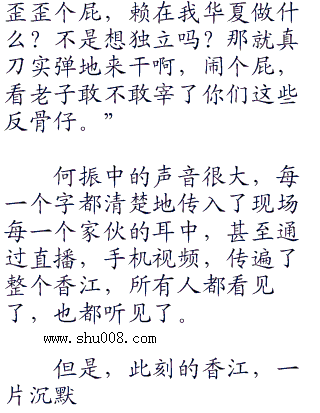 歪歪个屁，赖在我华夏做什
么？不是想独立吗？那就真
刀实弹地来干啊，闹个屁，
看老子敢不敢宰了你们这些
反骨仔。”
何振中的声音很大，每
一个字都清楚地传入了现场
每一个家伙的耳中，甚至通
过直播，手机视频，传遍了
整个香江，所有人都看见
了，也都听见了。
www.shu008.com
但是，此刻的香江，一
片沉默